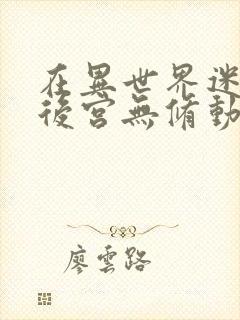 在異世界迷
後宮無脩動
廖雲路